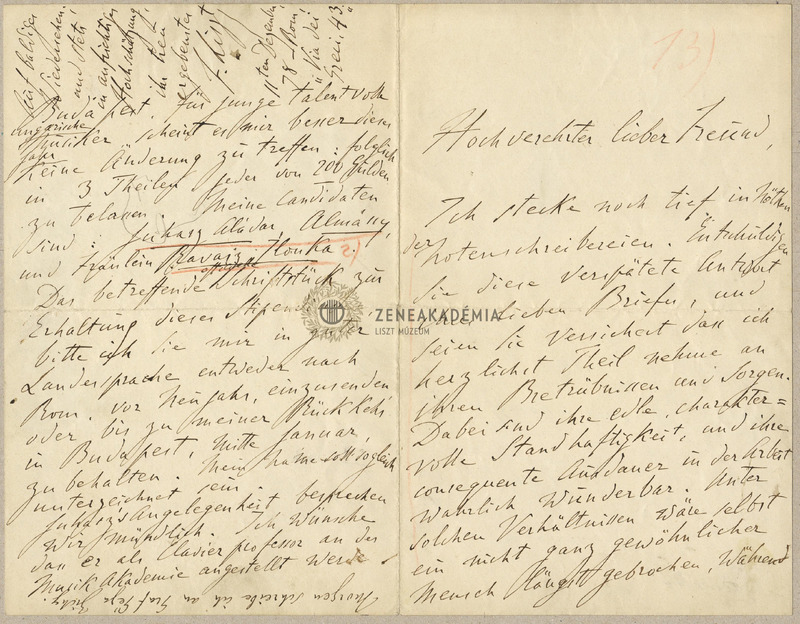 13)
Hochverehrter lieber Freund,
Ich stecke noch tief in Nöthen
der Notenschreibereien. Entschuldigen
Sie diese verspätete Antwort
lieben Briefes, und
seien Sie versichert dass ich
herzlichst Theil nehme an
ihren Betrübnissen und Sorgen.
Dabei sind ihre edle, charakter=
volle Standhaftigkeit, und ihre
consequente Ausdauer in der Arbeit
wahrlich wunderbar. Unter
solchen Verhältnissen wäre selbst
ein nicht ganz gewöhnlicher
Mensch längst gebrochen, während
Budapest, für junge talentvolle
ungarische
Musiker scheint es mir besser dieses
Jahr
keine Änderung zu treffen: folglich
in 3 Theilen jeder von 200 Gulden
zu belassen. Meine Candidaten
sind: Juhasz Aládar, Almássy,
und Fräulein Ravasz Ilonka 2)
Das betreffende officielle Schriftstück zur
Erhaltung dieses Stipendiums
bitte ich Sie mir in guter
Landessprache entweder nach
Rom, vor Neujahr, einzusenden
oder bis zu meiner Rückkehr
in Budapest, mitte Januar,
zu behalten. Mein Name soll sogleich
unterzeichnet sein.
Juhasz's Angelegenheit besprechen
wir mündlich. Ich wünsche
dass er als Clavier professor an der
Musik Akademie angestellt werde
Morgen schreibe ich an Graf Géza Zichy.
Auf baldiges
Wiedersehen
und stets
in aufrichtiger
Hochschätzung,
ihr treu
ergebenster
F. Liszt
11ten Dezember
78 – Rom
"Via dei
Greci, 43."
ZENEAKADÉMIA
LISZT MÚZEUM